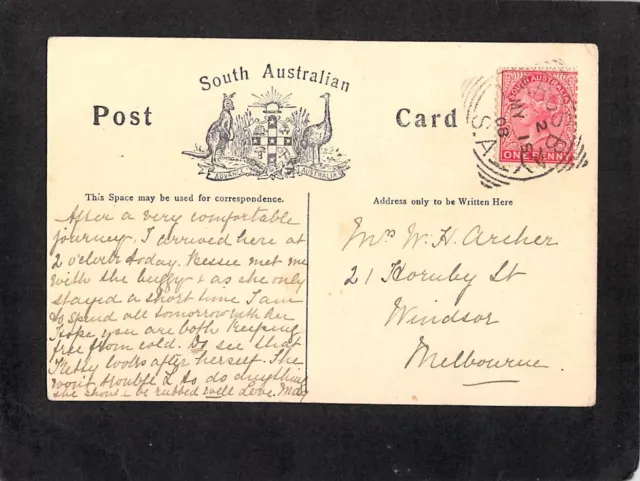 South Australian
Post Card
ADVANCE AUSTRALIA
SOUTH AUSTRALIA
ONE PENNY
MY
2
08
S.A.
This Space may be used for correspondence.
After a very comfortable
journey, I arrived here at
2 o'clock today. Bessie met me
with the buggy & as she only
stayed a short time I am
to spend all tomorrow with her
Hope you are both keeping
free from cold. Do see that
Kitty looks after herself. She
won't trouble to do anything
she should be rubbed well Love. May
Address only to be Written Here
Mrs W. H. Archer
21 Hornby St
Windsor
Melbourne.